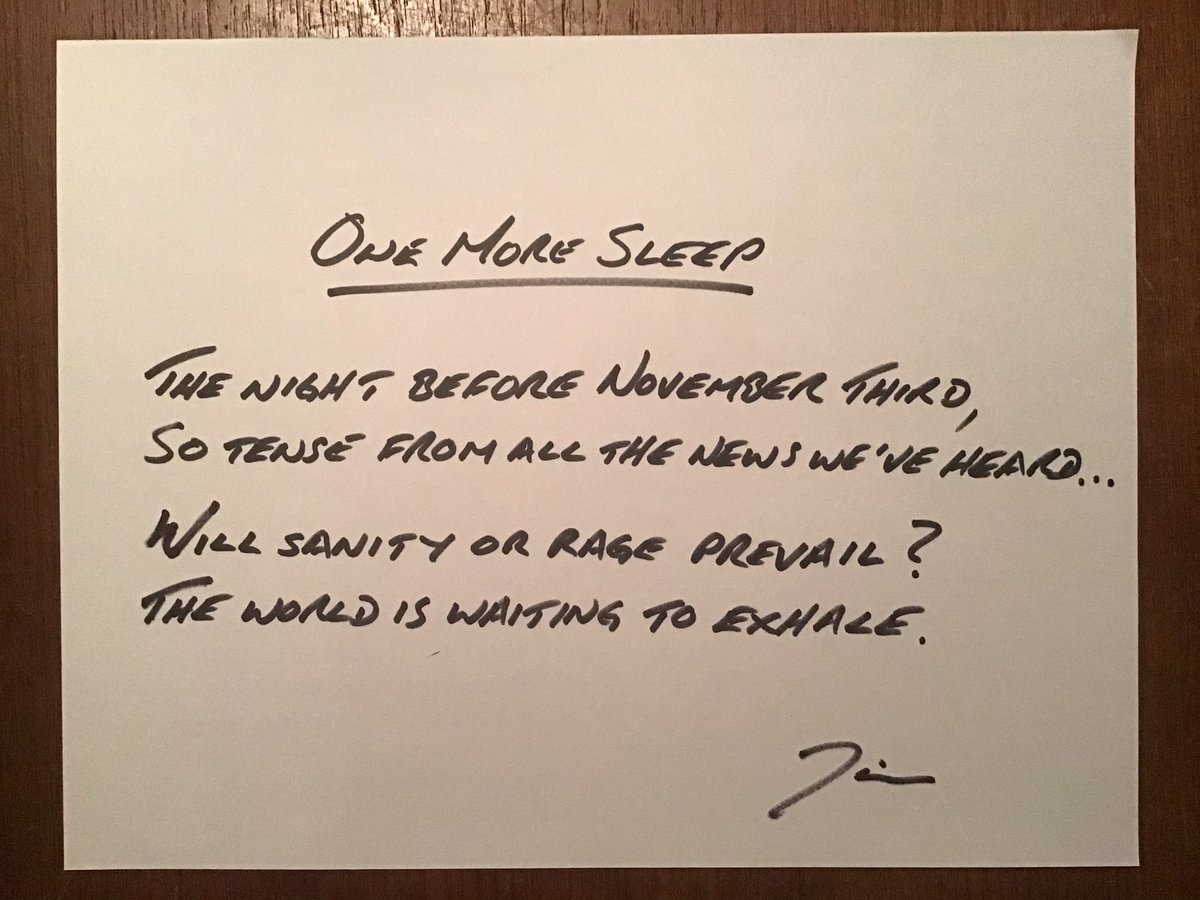 One More Sleep
The night before November third,
So tense from all the news we've heard...
Will sanity or rage prevail?
The world is waiting to exhale.